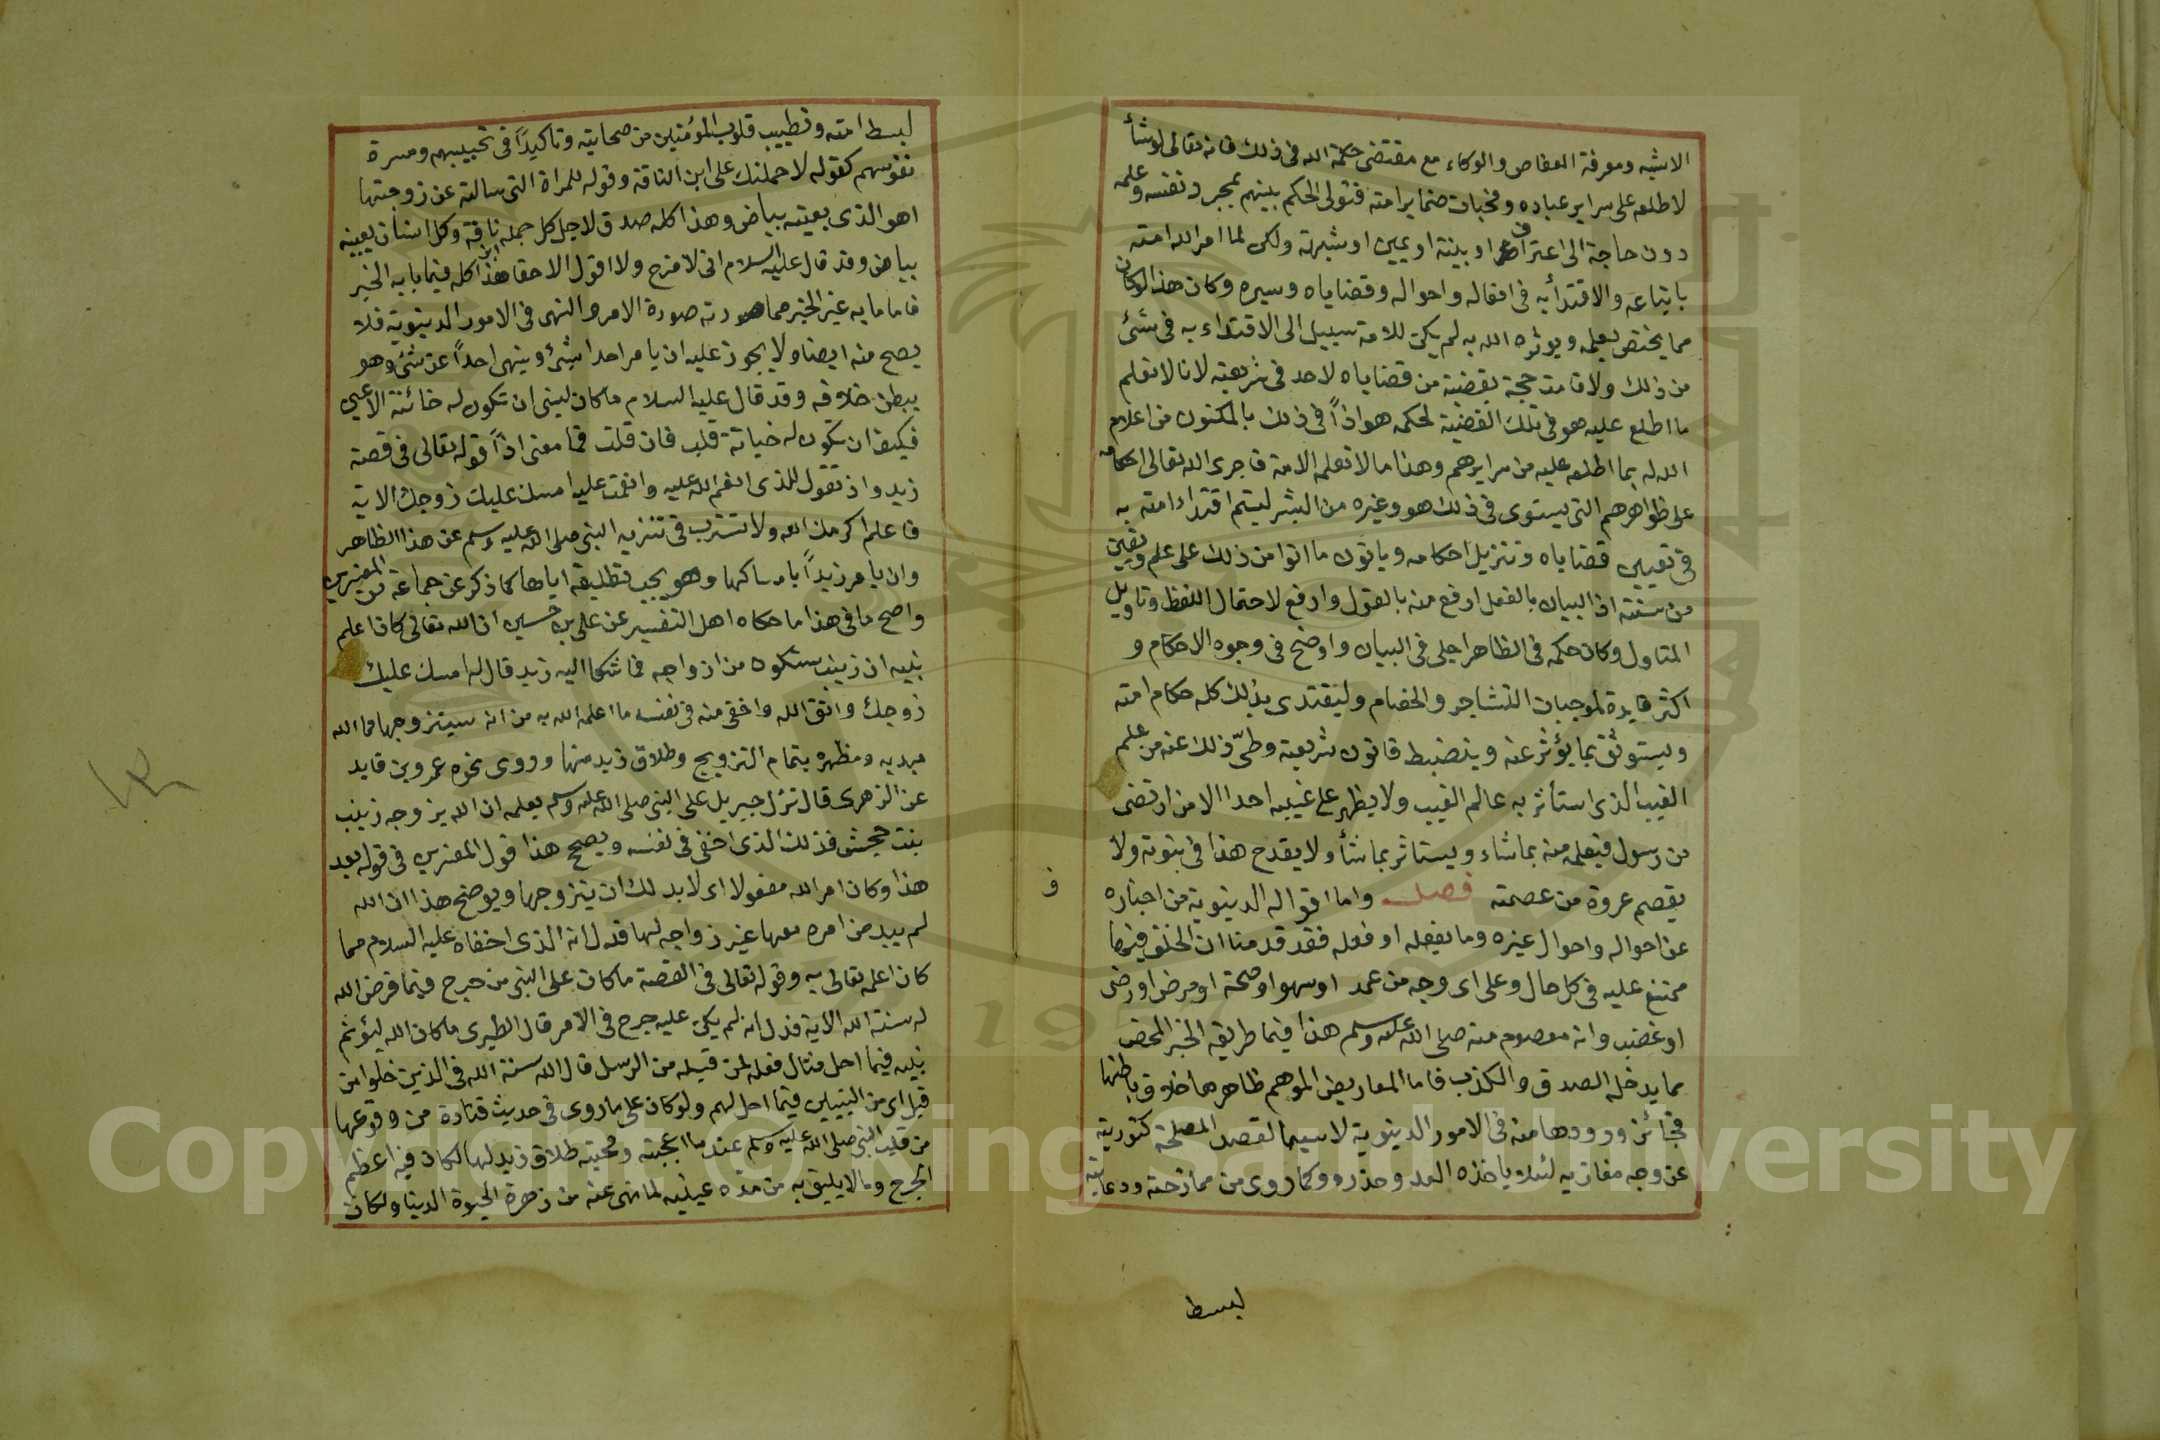 الاشبه ومعرفة العفاص والوكاء مع مقتضى حكمة الله فى ذلك فانه تعالى لوشأ
لاطلعه على سراير عباده ومخبات ضماير امته فتولى الحكم بينهم بمجرد نفسه وعلمه
دون حاجة الى اعتراف او بينة او يمين او شبهة ولكن لما امر الله امته
باتباعه والاقتدأ به فى افعاله واحواله وقضاياه وسيره وكان هذا لوكان
مما يختص بعلمه ويوثره الله به لم يكن للامة سبيل الى الاقتداء به فى شئ
من ذلك ولا قامت حجة بقضية من قضاياه لاحد فى شريعته لانا لا نعلم
ما اطلع عليه هو فى تلك القضية لحكمه هو اذاً فى ذلك بالمكنون من اعلام
الله له بما اطلعه عليه من سرايرهم وهذا ما لا تعلمه الامة فاجرى الله تعالى احكامه
على ظواهرهم التى يستوى فى ذلك هو وغيره من البشر ليتم اقتداء امته به
فى تعيين قضاياه وتنزيل احكامه وياتون ما اتوا من ذلك على علم ويقين
من سنته اذ البيان بالفعل ارفع منه بالقول وارفع لاحتمال اللفظ وتاويل
المتاول وكان حكمه فى الظاهر اجلى فى البيان واوضح فى وجوه الاحكام و
اكثر فايدة لموجبات التشاجر والخصام وليقتدى بذلك كله حكام امته
وليستوثق بما يؤثر عنه وينضبط قانون شريعته وطىّ ذلك عنه من علم
الغيب الذى استأثر به عالم الغيب ولا يظهر على غيبه احدا الا من ارتضى
من رسول فيعلمه منه بما شاء ويستاثر بما شأ ولا يقدح هذا فى نبوته ولا
يفصم عروة من عصمته فصل واما اقواله الدنيوية من اخباره
عن احواله واحوال غيره وما يفعله او فعله فقد قدمنا ان الخلف فيها
ممتنع عليه فى كل حال وعلى اى وجه من عمد او سهو او صحة او مرض او رضى
او غضب وانه معصوم منه صلى الله عليه وسلم هذا فيما طريقه الخبر المحض
مما يدخله الصدق والكذب فاما المعاريض الموهم ظاهرها خلاف باطنها
فجائز ورودها منه فى الامور الدنيوية لاسيما لقصد المصلحة كتوريته
عن وجه مغازيه لئلا ياخذه العدو حذره وكما روى من ممازحته ودعابته
لبسط
ف
لبسط امته وتطييب قلوب المؤمنين من صحابته وتاكيداً فى تحبيبهم ومسرة
نفوسهم كقوله لاحملنك على ابن الناقة وقوله للمراة التى سالته عن زوجتها
اهو الذى بعينه بياض وهذا كله صدق لاجل كل جمل ابن ناقة وكل انسان بعينه
بياض وقد قال عليه السلام انى لامزح ولا اقول الا حقا هذا كله فيما بابه الخبر
فاما ما به غير الخبر مما هو رته صورة الامر والنهى فى الامور الدنيوية فلا
يصح منه ايضا ولا يجوز عليه ان يامر احدا بشئ وينهى احداً عن شئ وهو
يبطن خلافه وقد قال عليه السلام ما كان لينى ان تكون له خائنة الاعين
فكيف ان يكون له خيانة قلب فان قلت فما معنى اذاً قوله تعالى فى قصة
زيد واذ تقول للذى انعم الله عليه وانعمت عليه امسك عليك زوجك الاية
فاعلم اكرمك الله ولا تسترب فى تنزيه النبى صلى الله عليه وسلم عن هذا الظاهر
وان يامر زيداً بامساكها وهو يحب تطليقه اياها كما ذكر عن جماعة من المفسرين
واصح ما فى هذا ما حكاه اهل التفسير عن على بن حسين ان الله تعالى كان اعلم
نبيه ان زينب ستكون من ازواجه فما شكا اليه زيد قال له امسك عليك
زوجك واتق الله واخفى منه فى نفسه ما اعلمه الله به من انه سيتزوجها مما الله
مبديه ومظهره بتمام التزويج وطلاق زيد منها وروى نحوه عمرو بن قايد
عن الزهرى قال نزل جبريل على النبى صلى الله عليه وسلم يعلمه ان الله يزوجه زينب
بنت جحش فذلك الذى اخفى فى نفسه ويصحح هذا قول المفسرين فى قوله بعد
هذا وكان امر الله مفعولا اى لابد لك ان يتزوجها ويوضح هذا ان الله
لم يبد من امره معها غير زواجه لها فدل انه الذى اخفاه عليه السلام مما
كان اعلمه تعالى به وقوله تعالى فى القصة ما كان على النبى من حرج فيما فرض الله
له سنة الله الاية فدل انه لم يكن عليه حرج فى الامر قال الطبرى ما كان الله ليؤثم
نبيه فيما احل مثال فعله لمن قبله من الرسل قال الله سنة الله فى الذين خلوا من
قبل اى من النبيين فيما احل لهم ولو كان على ما روى فى حديث قتادة من وقوعها
من قلب النبى صلى الله عليه وسلم عند ما اعجبته ومحبته طلاق زيد لها لكان فيه اعظم
الحرج وما لا يليق به من مده عينيه لما نهى عنه من زهرة الحيوة الدنيا ولكان
Copyright © King Saud University